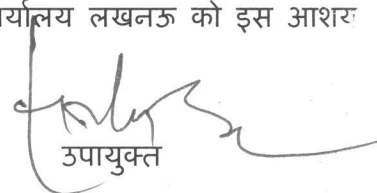 र्यालय लखनऊ को इस आशय
उपायुक्त